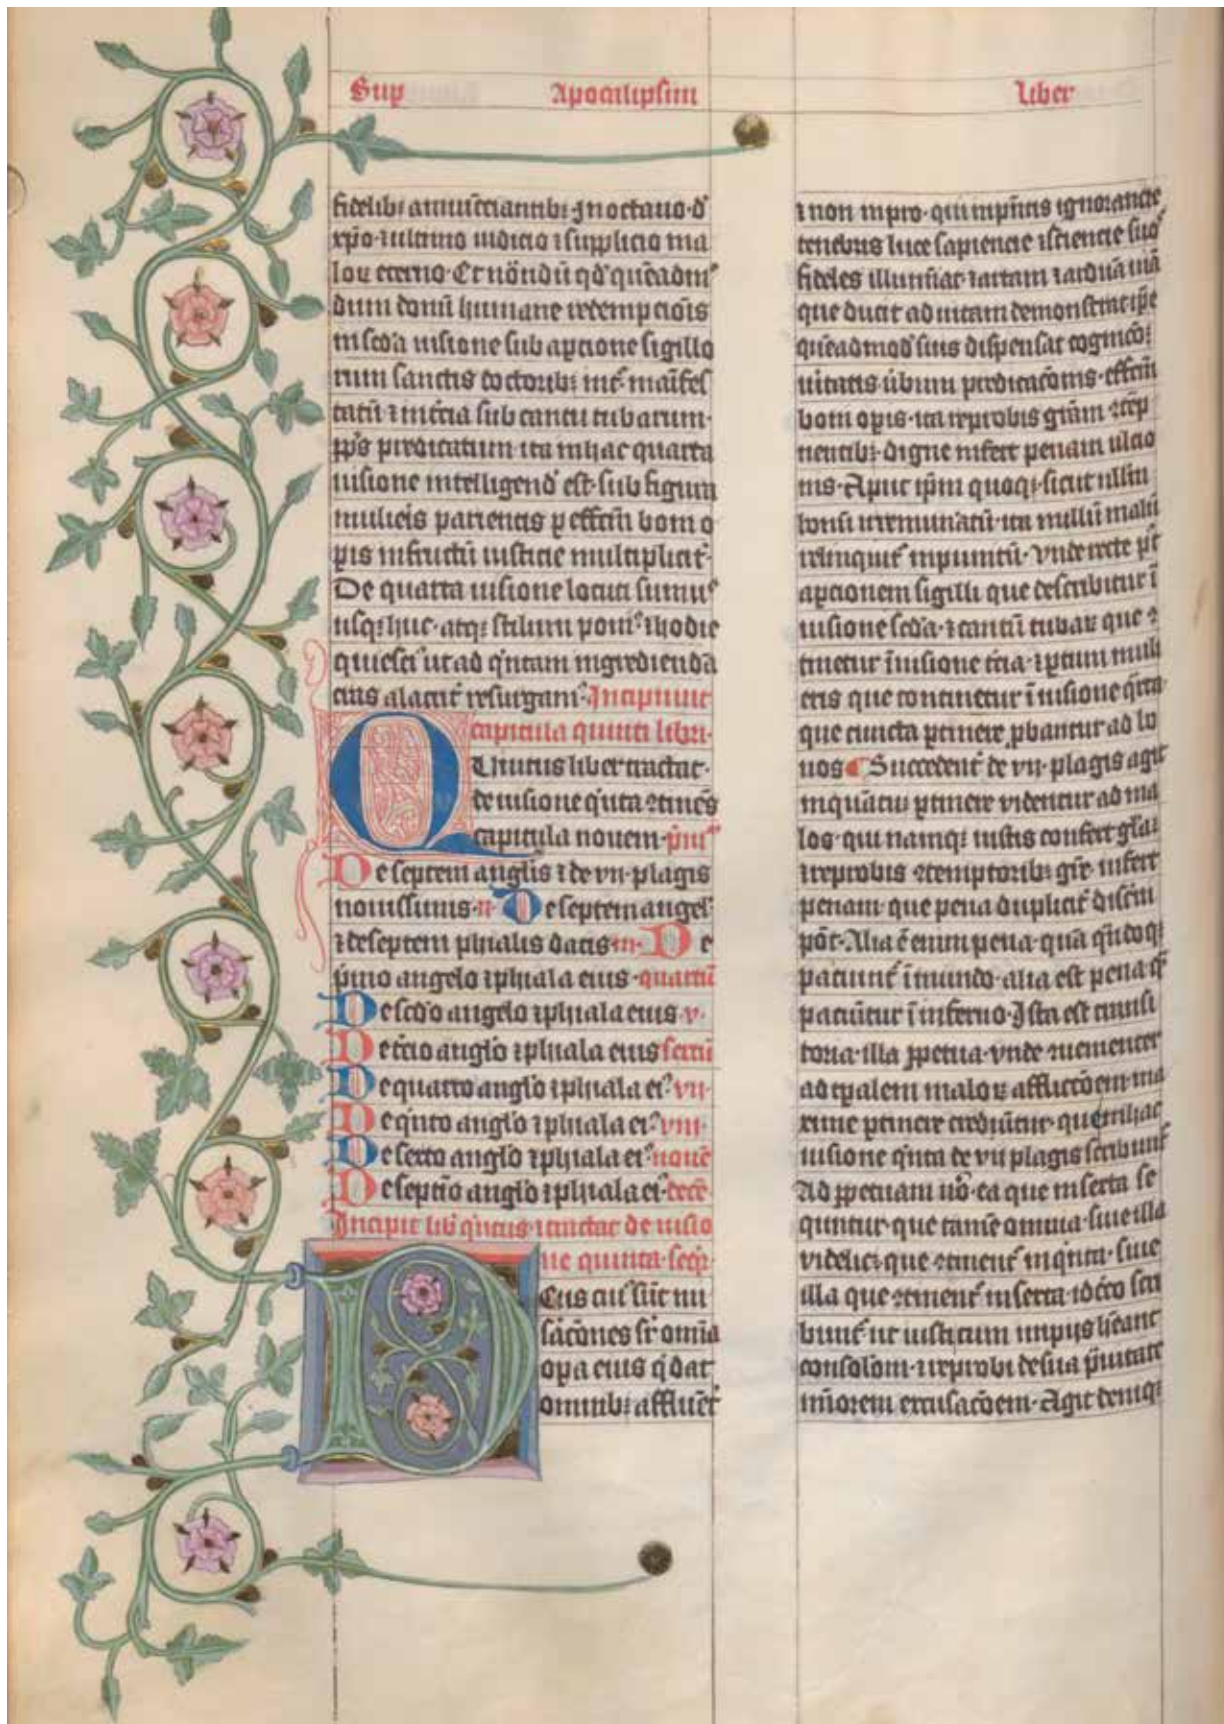 Sup Apocalipsim Liber
fidelib; annūcciantib; Jn octauo d̄
xp̄o ⁊ ultimo iudicio ⁊ supplicio ma
loꝝ eterno Et nōndū qd̄ quēadm
dum donū humane redempciōis
in scd̄a uisione sub apcione sigillo
rum sanctis doctorib;
tatū ⁊ in t̄cia sub cantu tubarum
pp̄s predicatum ita in hac quarta
uisione intelligend̄ est sub figura
mulieris parientis ꝑ effectū boni o
pis in fructū iusticie multiplicat̄
De quarta uisione locuti sumꝰ
usq; huc atq; stilum hodie
quiesci ut ad q̇ntam ingrediendā
cius alacrit̄ resurgamꝰ Incipiunt
capitula quinti libri
Quintus liber tractat
de uisione q̇nta ꝯtinēs
capitula nouem p̄mū
De septem anglis ⁊ de vii plagis
nouissimis ii De septem angel
⁊ de septem phialis datis iii De
p̄mo angelo ⁊ phiala eius quartū
De scd̄o angelo ⁊ phiala eius v
De t̄cio anglo ⁊ phiala eius sextū
De quarto anglo ⁊ phiala eiꝰ vii
De q̇nto anglo ⁊ phiala eiꝰ viii
De sexto anglo ⁊ phiala eiꝰ nonū
De septīo anglo ⁊ phiala eiꝰ decē
Incipit lib̄ q̇ntus ⁊ tractat de uisio
ne quinta seq̄r
Deus cuiꝰ sūt mi
sācōnes sr̄ omīa
opa eius q̇ dat
omnib; affluent̄
⁊ non inpro qui inp̄ntis ignorancie
tenebris luce sapiencie ⁊ sciencie suoˢ
fideles illumīat ⁊ artam ⁊ arduā uiā
que ducit ad uitam demonstrat ip̄e
quēadmod̄ suis dispensat cognicōꝫ
uitatis ūbum predicacōnis effectū
boni opis ita reprobis grām ꝯtēp
nentib; digne infert penam ulcio
nis Aput ip̄m quoq; sicut nllm̄
bonū irremuneratū ita nullū malū
relinquit̄ inpunitū Vnde recte pꝰ
apcionem sigilli que describitur ī
uisione scd̄a ⁊ cantū tubaꝝ que ꝯ
tinetur ī uisione t̄cia ⁊ ptum muli
eris que continetur ī uisione q̄rta
que cuncta ptinere pbantur ad bo
nos ¶ Succedent̄ de vii plagis agit
inquātū ptinere videntur ad ma
los qui namq; iustis confert glāꝫ
⁊ reprobis ꝯtemptorib; infert
penam que pena duplicit̄
pōt Alia ē enim pena quā
paciunt̄ ī mundo alia est pena
paciūtur ī inferno Ista est transi
toria illa ppetua vnde
ad tpalem maloꝝ afflictōem ma
xime ptinere creduntur que in hac
uisione q̇nta de vii plagis scribunt̄
Ad ppetuam uō ea que in sexta se
quntur que tamē omnia siue illa
videlic; que ꝯtinent̄ in q̇nta siue
illa que ꝯtinent̄ in sexta idcō sc̄ri
bunt̄ ut iusti cum impijs hēant
consolom̄ ⁊ reprobi de sua
mīorem excusacōem Agit deniq;